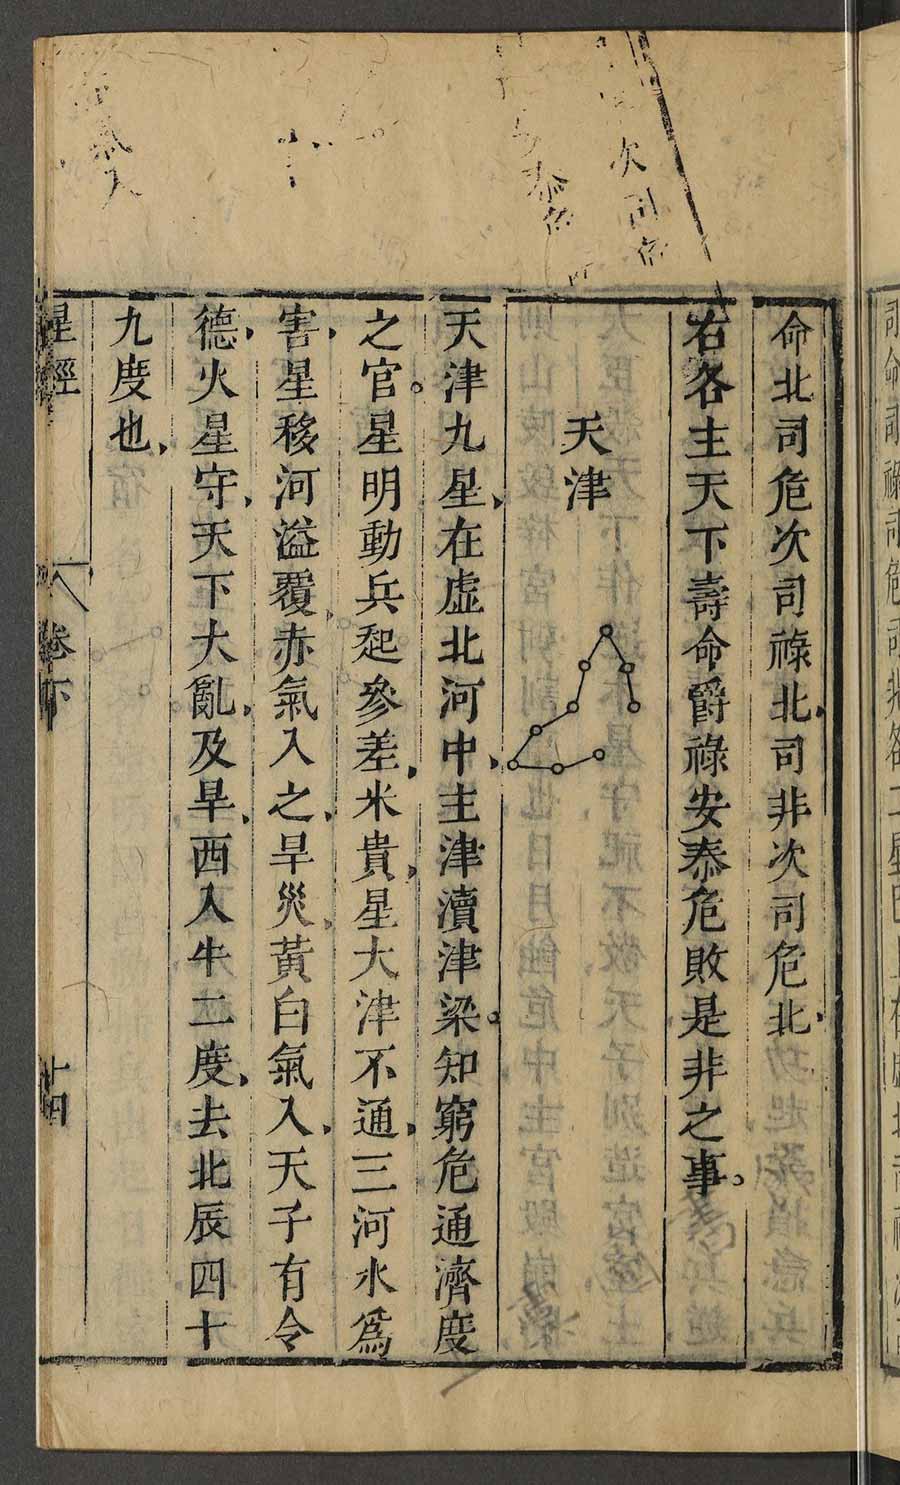 命北司危次司祿北司非次司危北
右各主天下壽命爵祿安泰危敗是非之事。
天津
天津九星在虛北河中主津瀆津梁。知窮危通濟度
之官。星明動兵起參差米貴星大津不通三河水為
害星移河溢覆赤氣入之旱災黃白氣入天子有令
德火星守天下大亂及旱西入牛二度去北辰四十
九度也
星經
卷下
十四